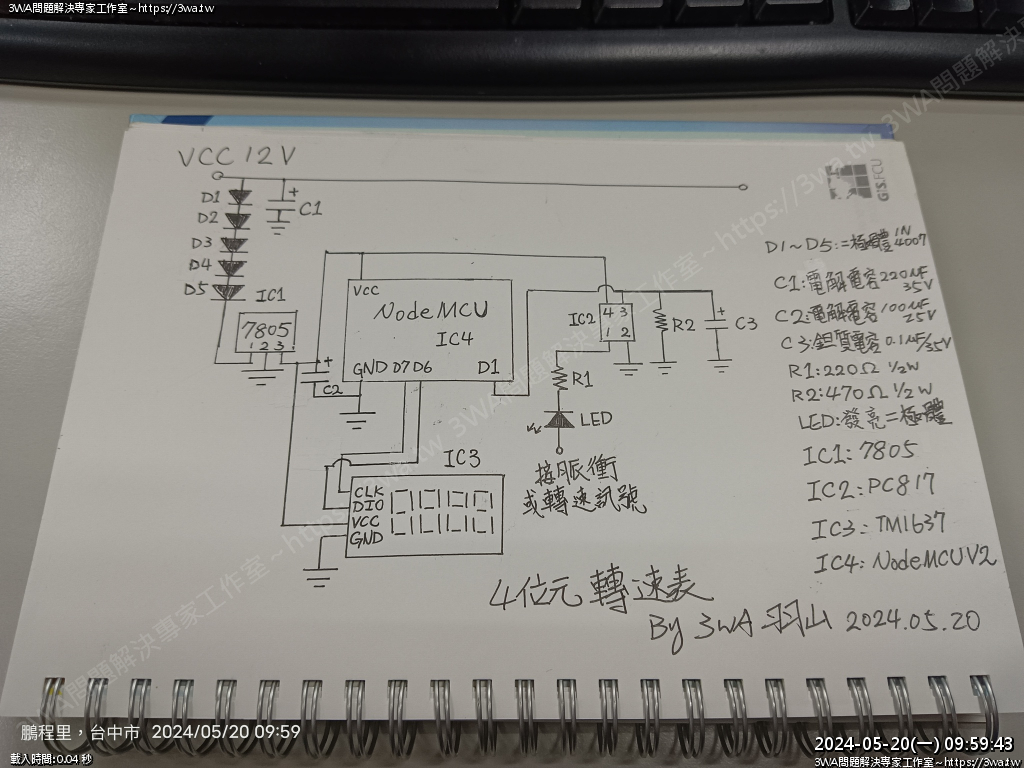 3WA問題解決專家工作室~https://3wa.tw
3WA問題解決專家工作室~https://3wa.tw
GIS.FCU
VCC 12V
D1
D2
D3
D4
D5
+
C1
IC1
7805
1 2 3
+
C2
VCC
NodeMCU
IC4
GND D7 D6 D1
IC2
4 3
1 2
R2
+
C3
R1
LED
接脈衝
或轉速訊號
IC3
CLK
DIO
VCC
GND
D1~D5:二極體 1N4007
C1:電解電容 220uF 35V
C2:電解電容 100uF 25V
C3:鉭質電容 0.1uF/35V
R1:220Ω 1/2W
R2:470Ω 1/2W
LED:發亮二極體
IC1:7805
IC2:PC817
IC3:TM1637
IC4:NodeMCUV2
4位元轉速表
By 3WA 羽山 2024.05.20
鵬程里,台中市 2024/05/20 09:59
載入時間:0.04 秒
2024-05-20(一) 09:59:43
3WA問題解決專家工作室~https://3wa.tw